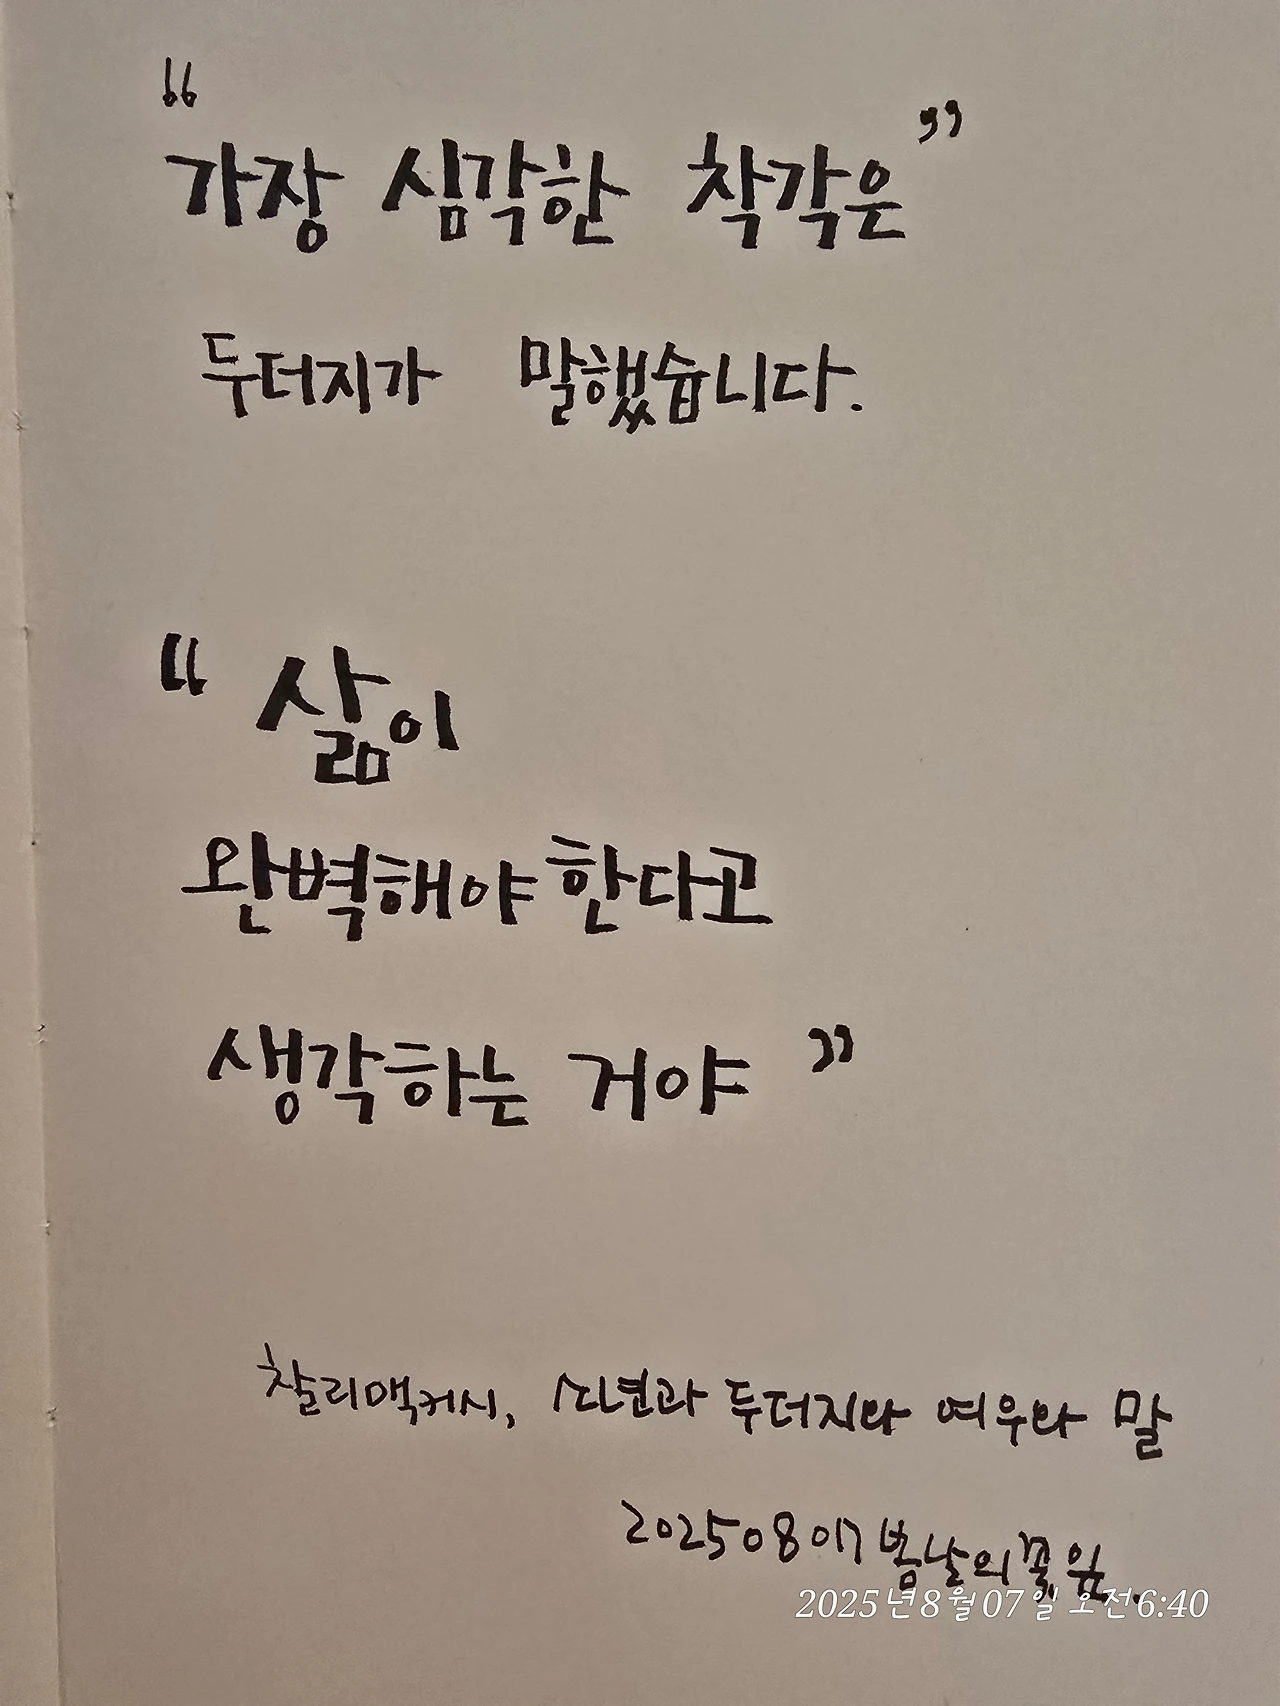 “가장 심각한 착각은”
두더지가 말했습니다.
“삶이
완벽해야 한다고
생각하는 거야”
찰리맥커시, 소년과 두더지와 여우와 말
20250807 봄날의꽃잎.
2025년8월07일 오전6:40